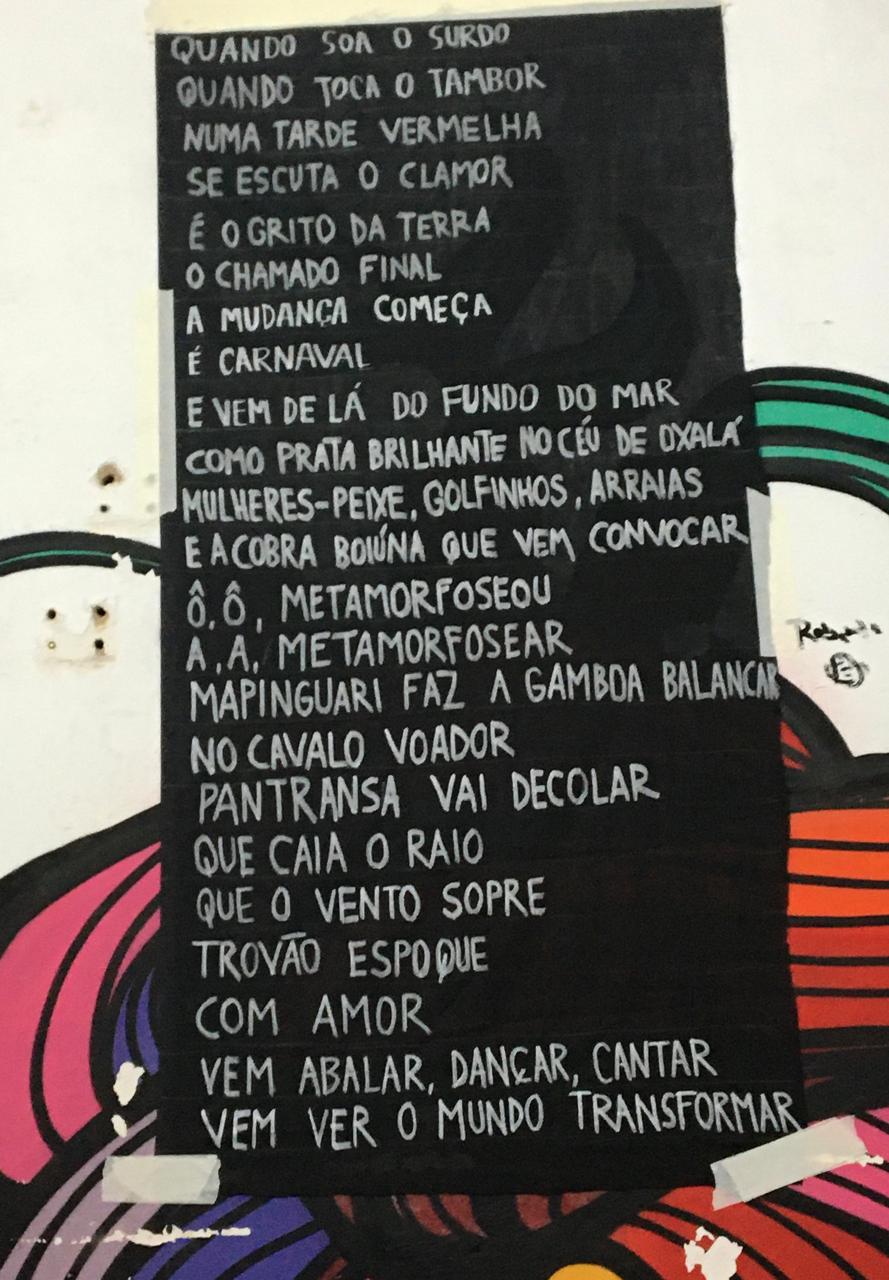 QUANDO SOA O SURDO
QUANDO TOCA O TAMBOR
NUMA TARDE VERMELHA
SE ESCUTA O CLAMOR
É O GRITO DA TERRA
O CHAMADO FINAL
A MUDANÇA COMEÇA
É CARNAVAL
E VEM DE LÁ DO FUNDO DO MAR
COMO PRATA BRILHANTE NO CÉU DE OXALÁ
MULHERES-PEIXE, GOLFINHOS, ARRAIAS
E A COBRA BOIÚNA QUE VEM CONVOCAR
Ô, Ô, METAMORFOSEOU
A, A, METAMORFOSEAR
MAPINGUARI FAZ A GAMBOA BALANÇAR
NO CAVALO VOADOR
PANTRANSA VAI DECOLAR
QUE CAIA O RAIO
QUE O VENTO SOPRE
TROVÃO ESPOQUE
COM AMOR
VEM ABALAR, DANÇAR, CANTAR
VEM VER O MUNDO TRANSFORMAR